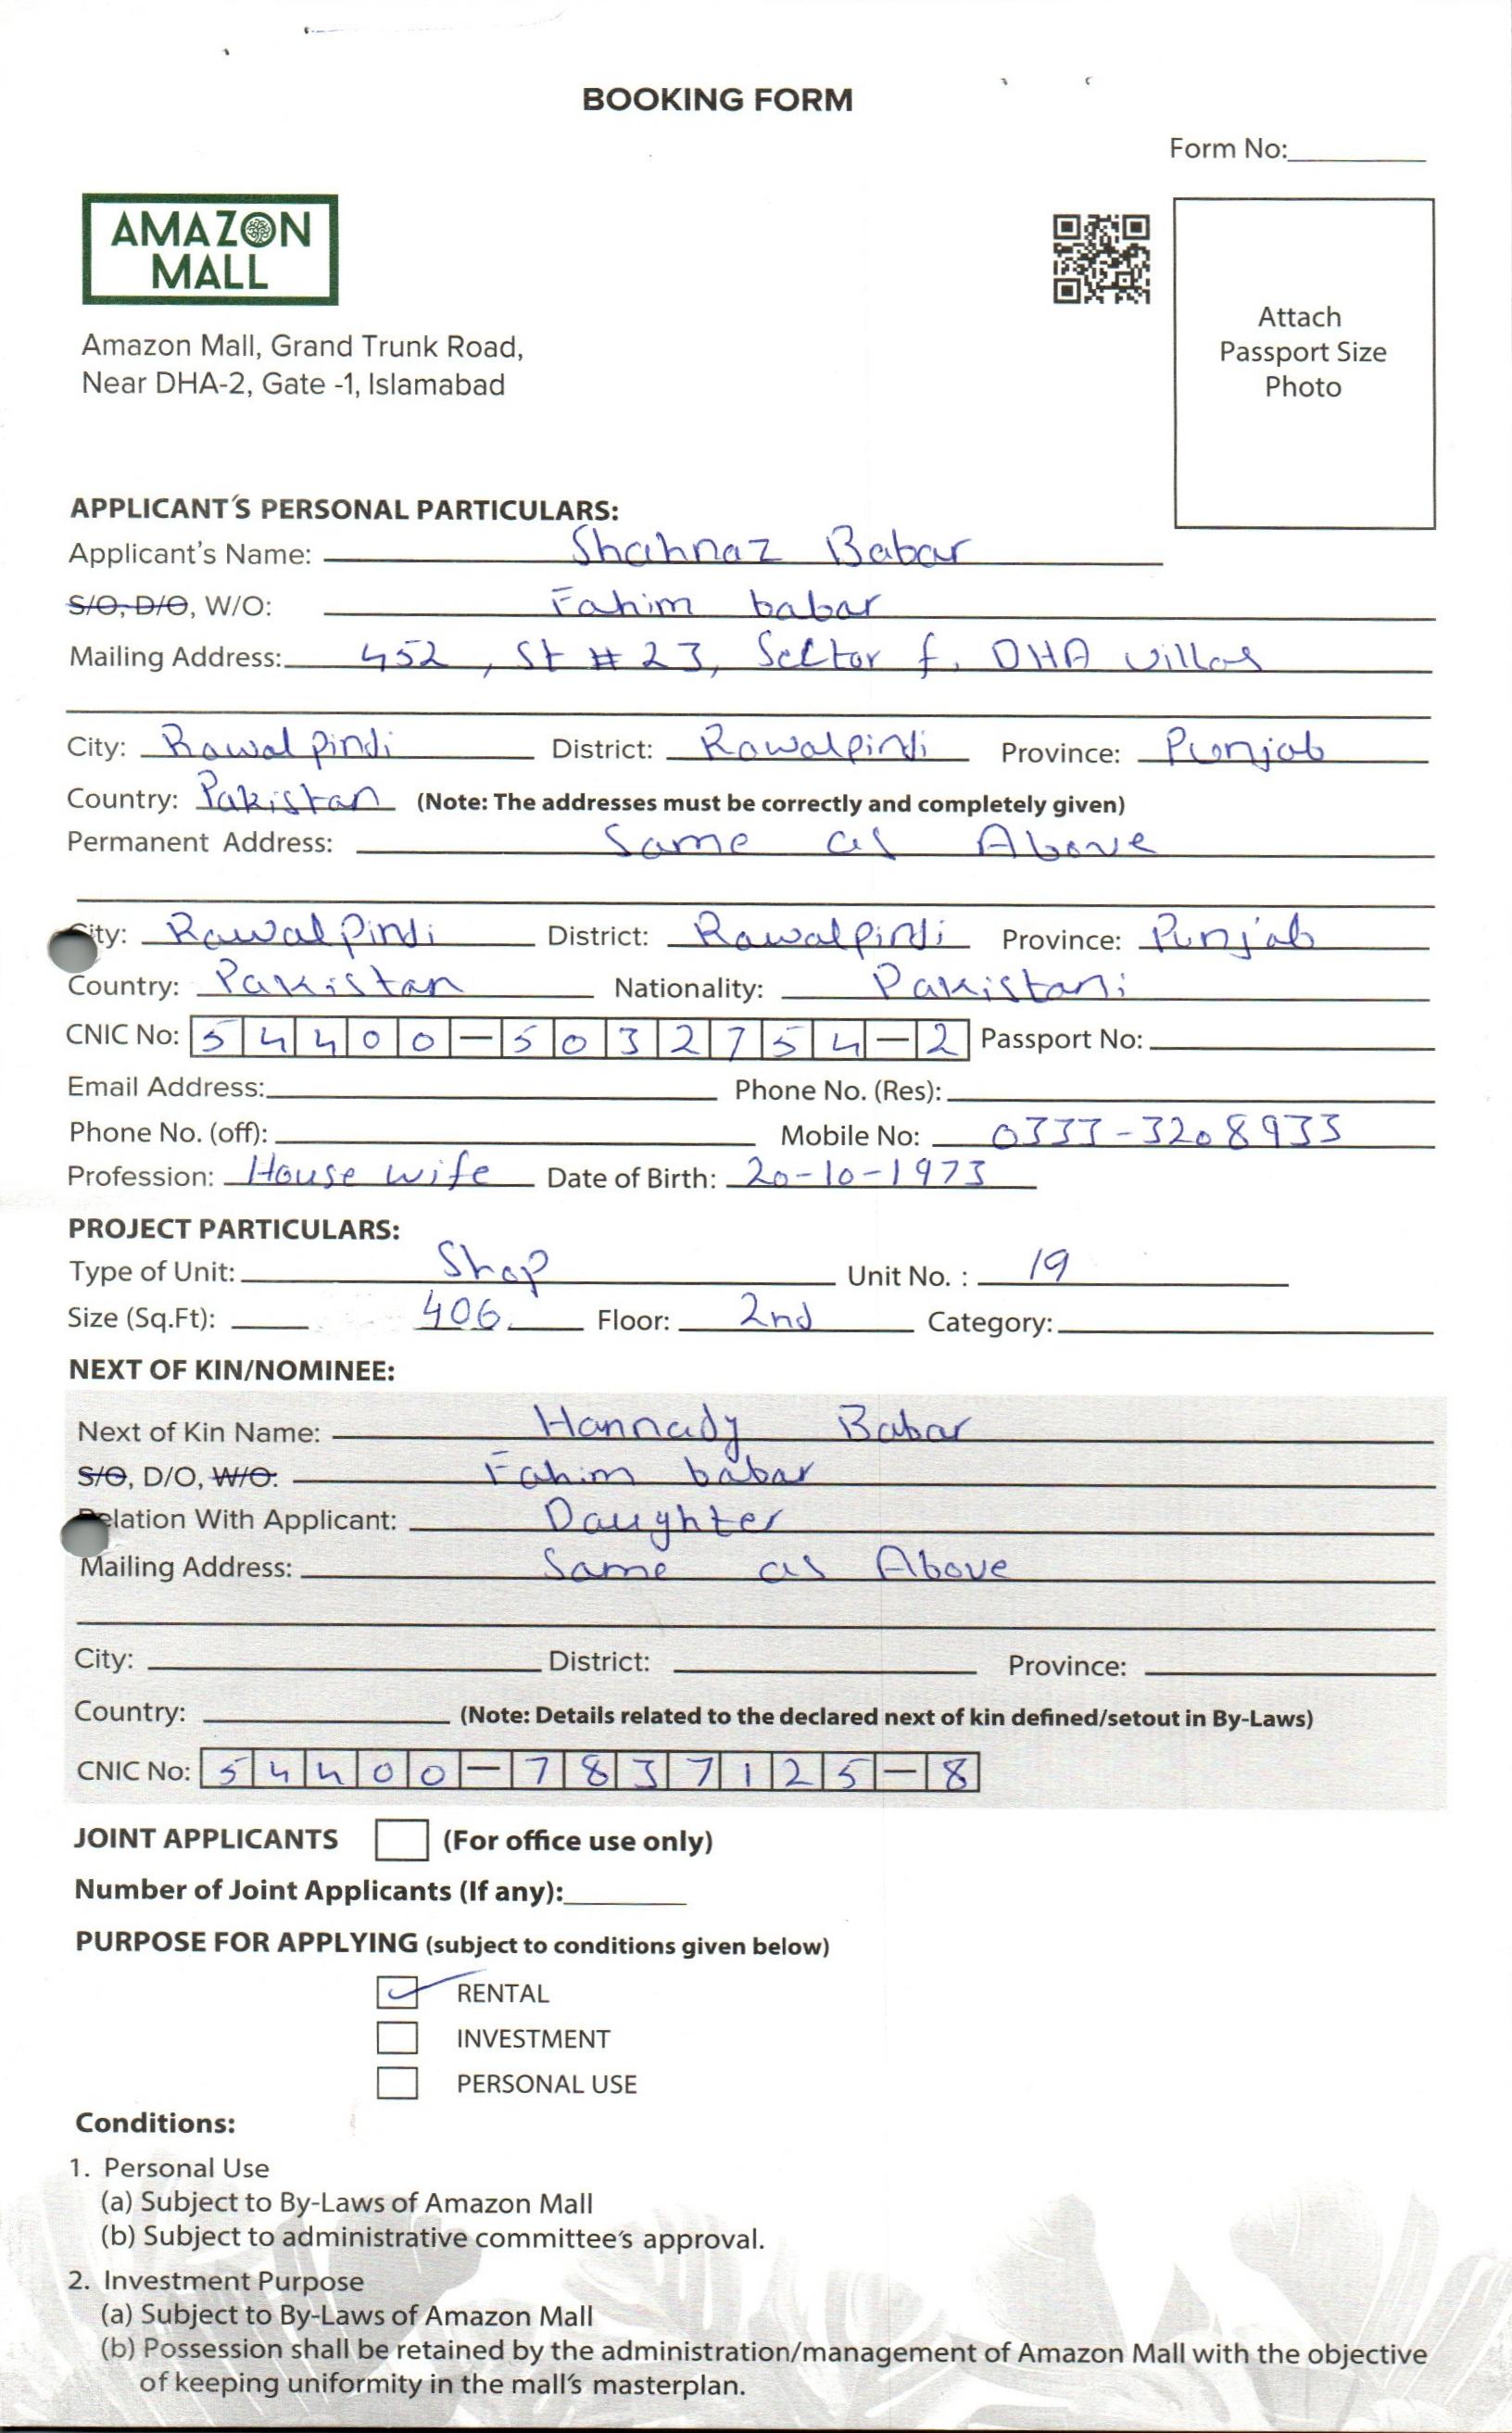 BOOKING FORM
Form No:
AMAZON
MALL
Attach
Passport Size
Photo
Amazon Mall, Grand Trunk Road,
Near DHA-2, Gate -1, Islamabad
APPLICANT'S PERSONAL PARTICULARS:
Applicant's Name: Shahnaz Babar
S/O, D/O, W/O: Fahim babar
Mailing Address: 452, St # 23, Sector f, DHA villas
City: Rawalpindi District: Rawalpindi Province: Punjab
Country: Pakistan (Note: The addresses must be correctly and completely given)
Permanent Address: Same as Above
City: Rawalpindi District: Rawalpindi Province: Punjab
Country: Pakistan Nationality: Pakistani
CNIC No: 54400-5032754-2 Passport No:
Email Address: Phone No. (Res):
Phone No. (off): Mobile No: 0333-3208933
Profession: House wife Date of Birth: 20-10-1973
PROJECT PARTICULARS:
Type of Unit: Shop Unit No. : 19
Size (Sq.Ft): 406 Floor: 2nd Category:
NEXT OF KIN/NOMINEE:
Next of Kin Name: Hannady Babar
S/O, D/O, W/O: Fahim babar
Relation With Applicant: Daughter
Mailing Address: Same as Above
City: District: Province:
Country: (Note: Details related to the declared next of kin defined/setout in By-Laws)
CNIC No: 54400-7837125-8
JOINT APPLICANTS (For office use only)
Number of Joint Applicants (If any):
PURPOSE FOR APPLYING (subject to conditions given below)
RENTAL
INVESTMENT
PERSONAL USE
Conditions:
1. Personal Use
(a) Subject to By-Laws of Amazon Mall
(b) Subject to administrative committee's approval.
2. Investment Purpose
(a) Subject to By-Laws of Amazon Mall
(b) Possession shall be retained by the administration/management of Amazon Mall with the objective
of keeping uniformity in the mall's masterplan.